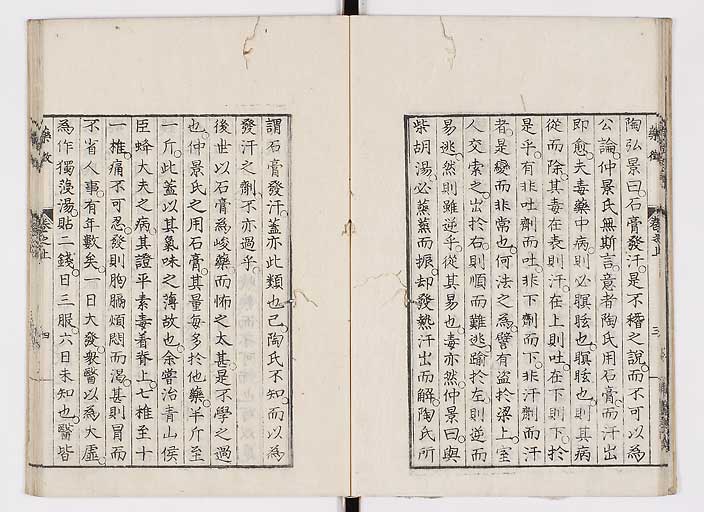 藥徵　卷之上　三
陶弘景曰石膏發汗是不稽之說而不可以為
公論仲景氏無斯言意者陶氏用石膏而汗出
即愈夫毒藥中病則必瞑眩也瞑眩也則其病
從而除其毒在表則汗在上則吐在下則下於
是乎有非吐劑而吐非下劑而下非汗劑而汗
者是變而非常也何法之為譬有盜於梁上室
人交索之出於右則順而難逃踰於左則逆而
易逃然則雖逆乎從其易也毒亦然仲景曰與
柴胡湯必蒸蒸而振却發熱汗出而解陶氏所
謂石膏發汗蓋亦此類也已陶氏不知而以為
發汗之劑不亦過乎
後世以石膏為峻藥而怖之太甚是不學之過
也仲景氏之用石膏其量每多於他藥半斤至
一斤此蓋以其氣味之薄故也余嘗治青山侯
臣蜂大夫之病其證平素毒着脊上七椎至十
一椎痛不可忍發則胸膈煩悶而渴甚則冒而
不省人事有年數矣一日大發衆醫以為大虛
為作獨蔆湯貼二錢日三服六日未知也醫皆
藥徵　卷之上　四